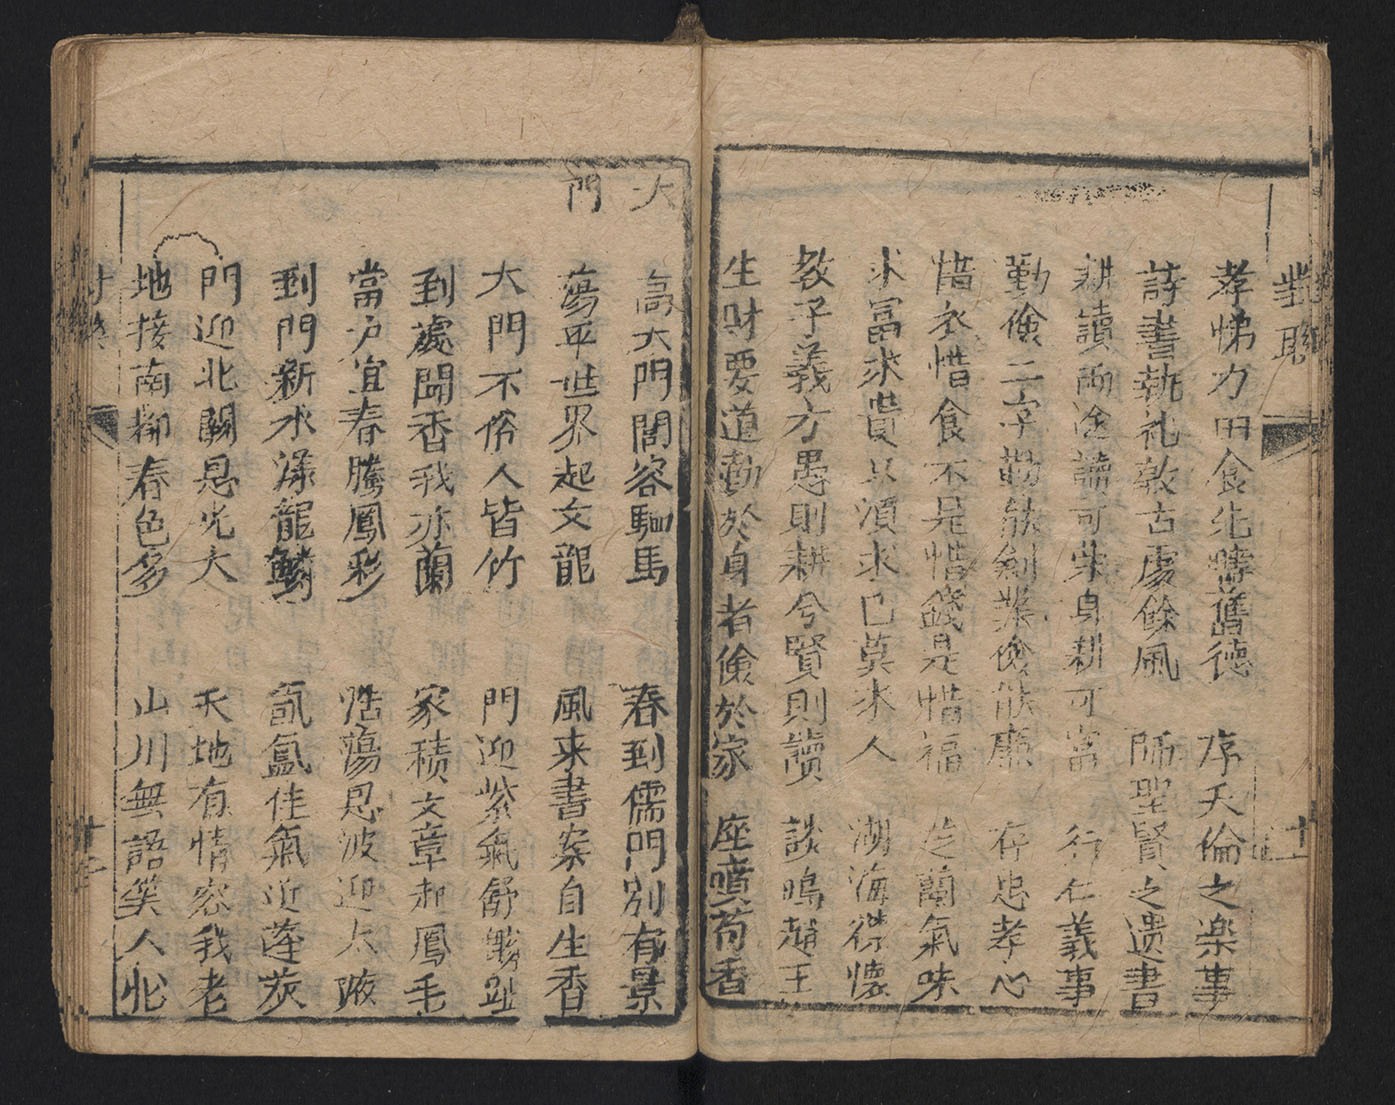 對聯
十一
孝悌力田食先疇舊德 序天倫之楽事
詩書執礼敦古處餘風 師聖賢之遗書
耕讀兩途讀可榮身耕可富 行仁義事
勤儉二字勤能創業儉能廉 存忠孝心
惜衣惜食不是惜錢是惜福 芝蘭氣味
求富求貴只須求己莫求人 湖海襟懐
教子義方愚則耕兮賢則讀 談鳴趙王
生財要道勤於身者儉於家 座噴荀香
大門
高大門閭容駟馬 春到儒門別有景
蕩平世界起文龍 風来書案自生香
大門不俗人皆竹 門迎紫氣舒麟趾
到處聞香我亦蘭 家積文章起鳳毛
當户宜春騰鳳彩 浩蕩恩波迎太液
到門新水漾龍鱗 氤氲佳氣近蓬萊
門迎北闕恩光大 天地有情容我老
地接南郷春色多 山川無語笑人忙